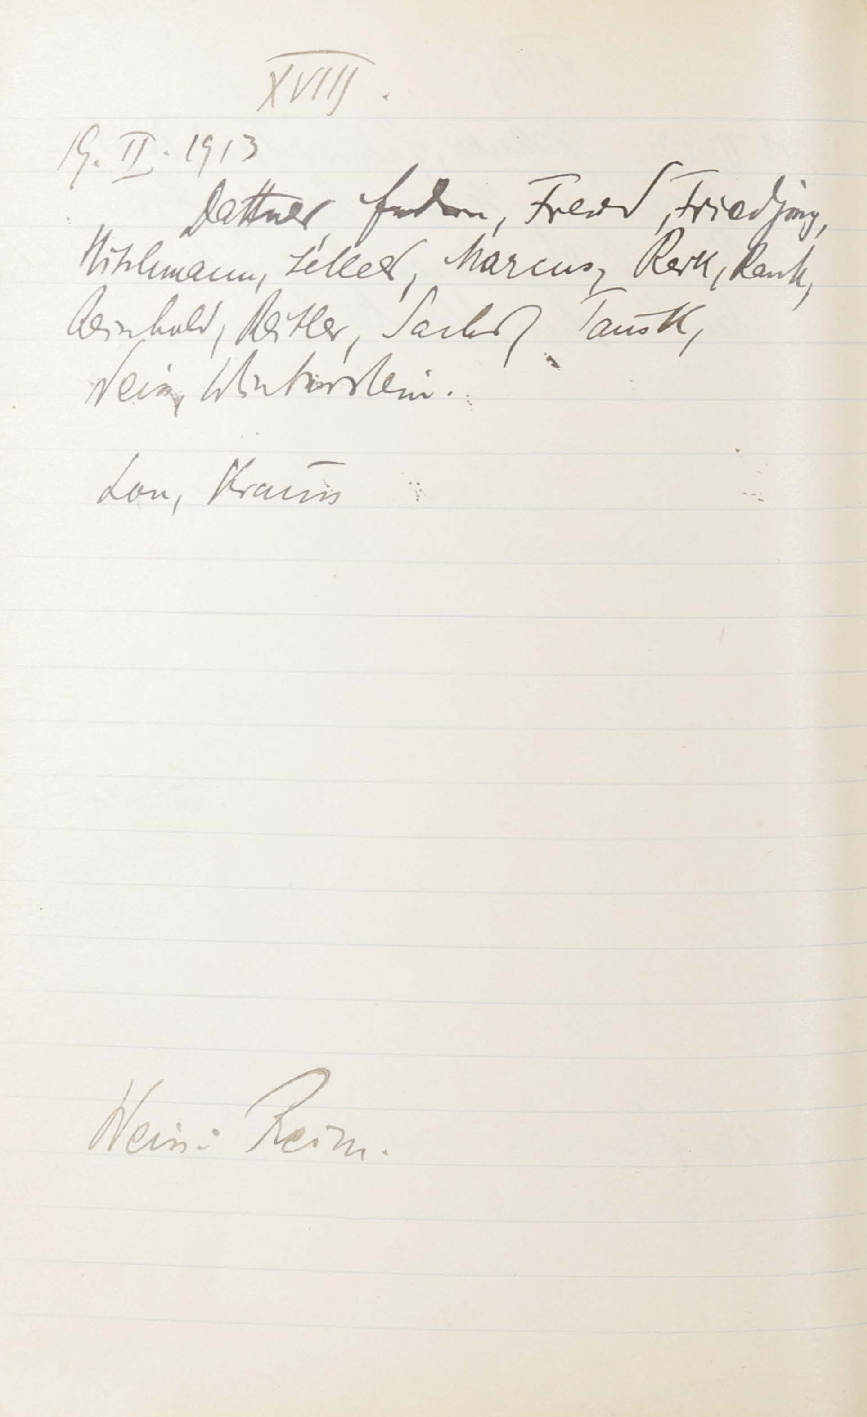 XVIII.
19. II. 1913
Dattner, Federn, Freud, Friedjung,
Hitschmann, Jekels, Marcus, Reik, Rank,
Reinhold, Reitler, Sachs, Tausk,
Weiss, Winterstein.
Lou, Krauss
Reim.